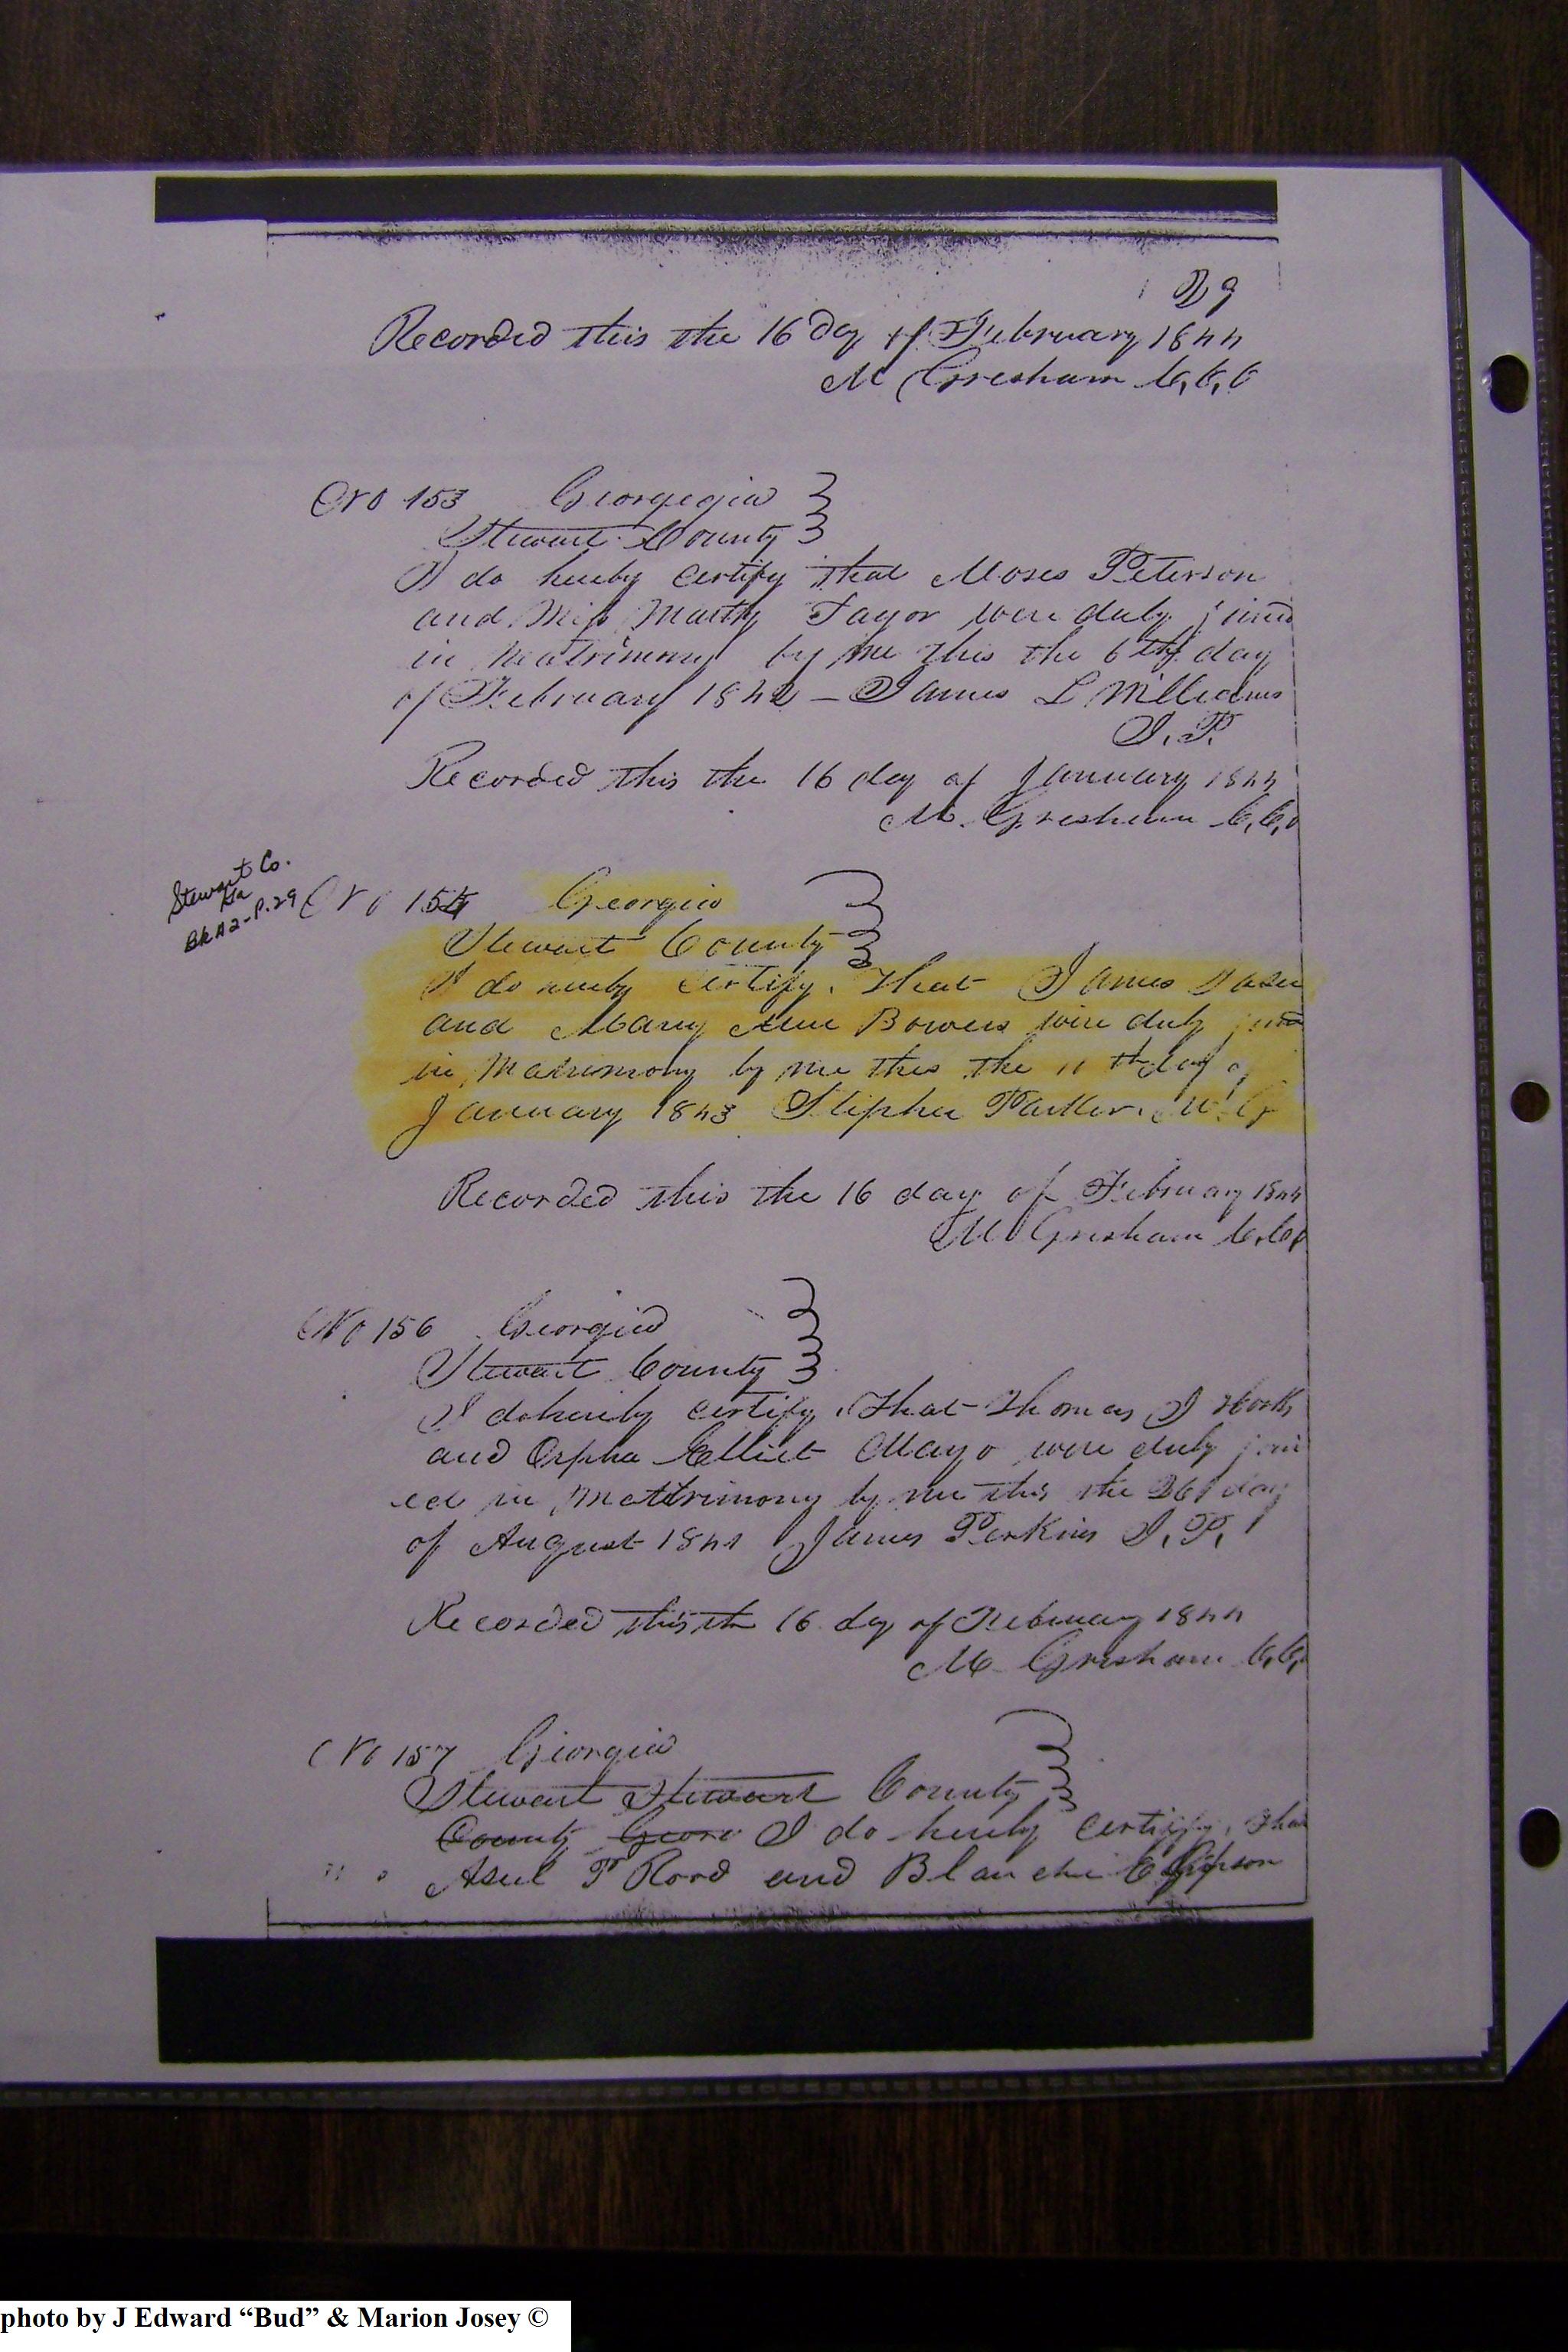 29
Recorded this the 16 day of February 1844
M Gresham C,C,O
No 153 Georgegia
Stewart County
I do hereby certify that Moses Peterson
and Miss Marthy Taylor were duly joined
in Matrimony by me this the 6th day
of February 1842 – James L Williams
J. P.
Recorded this the 16 day of January 1844
M. Gresham C,C,O
Stewart Co.
Ga
Bk A2-P.29
No 154 Georgia
Stewart County
I do hereby certify, that James
and Mary Ann Bowers were duly
in Matrimony by me this the 11th day of
January 1843 Stephen Parker. M. G
Recorded this the 16 day of February 1844
M Gresham C.C.O
No 156 Georgia
Stewart County
I do hereby certify, that Thomas J
and Orpha Elliet Mayo were duly join
ed in Mattrimony by me this the 26 day
of August 1841 James Perkins J. P.
Recorded this th 16 day of February 1844
M Gresham C,C,
No 157 Georgia
Stewart Stewart County
County Geor I do hereby certify, that
Asel P Rood and Blanche Gipson
photo by J Edward “Bud” & Marion Josey ©